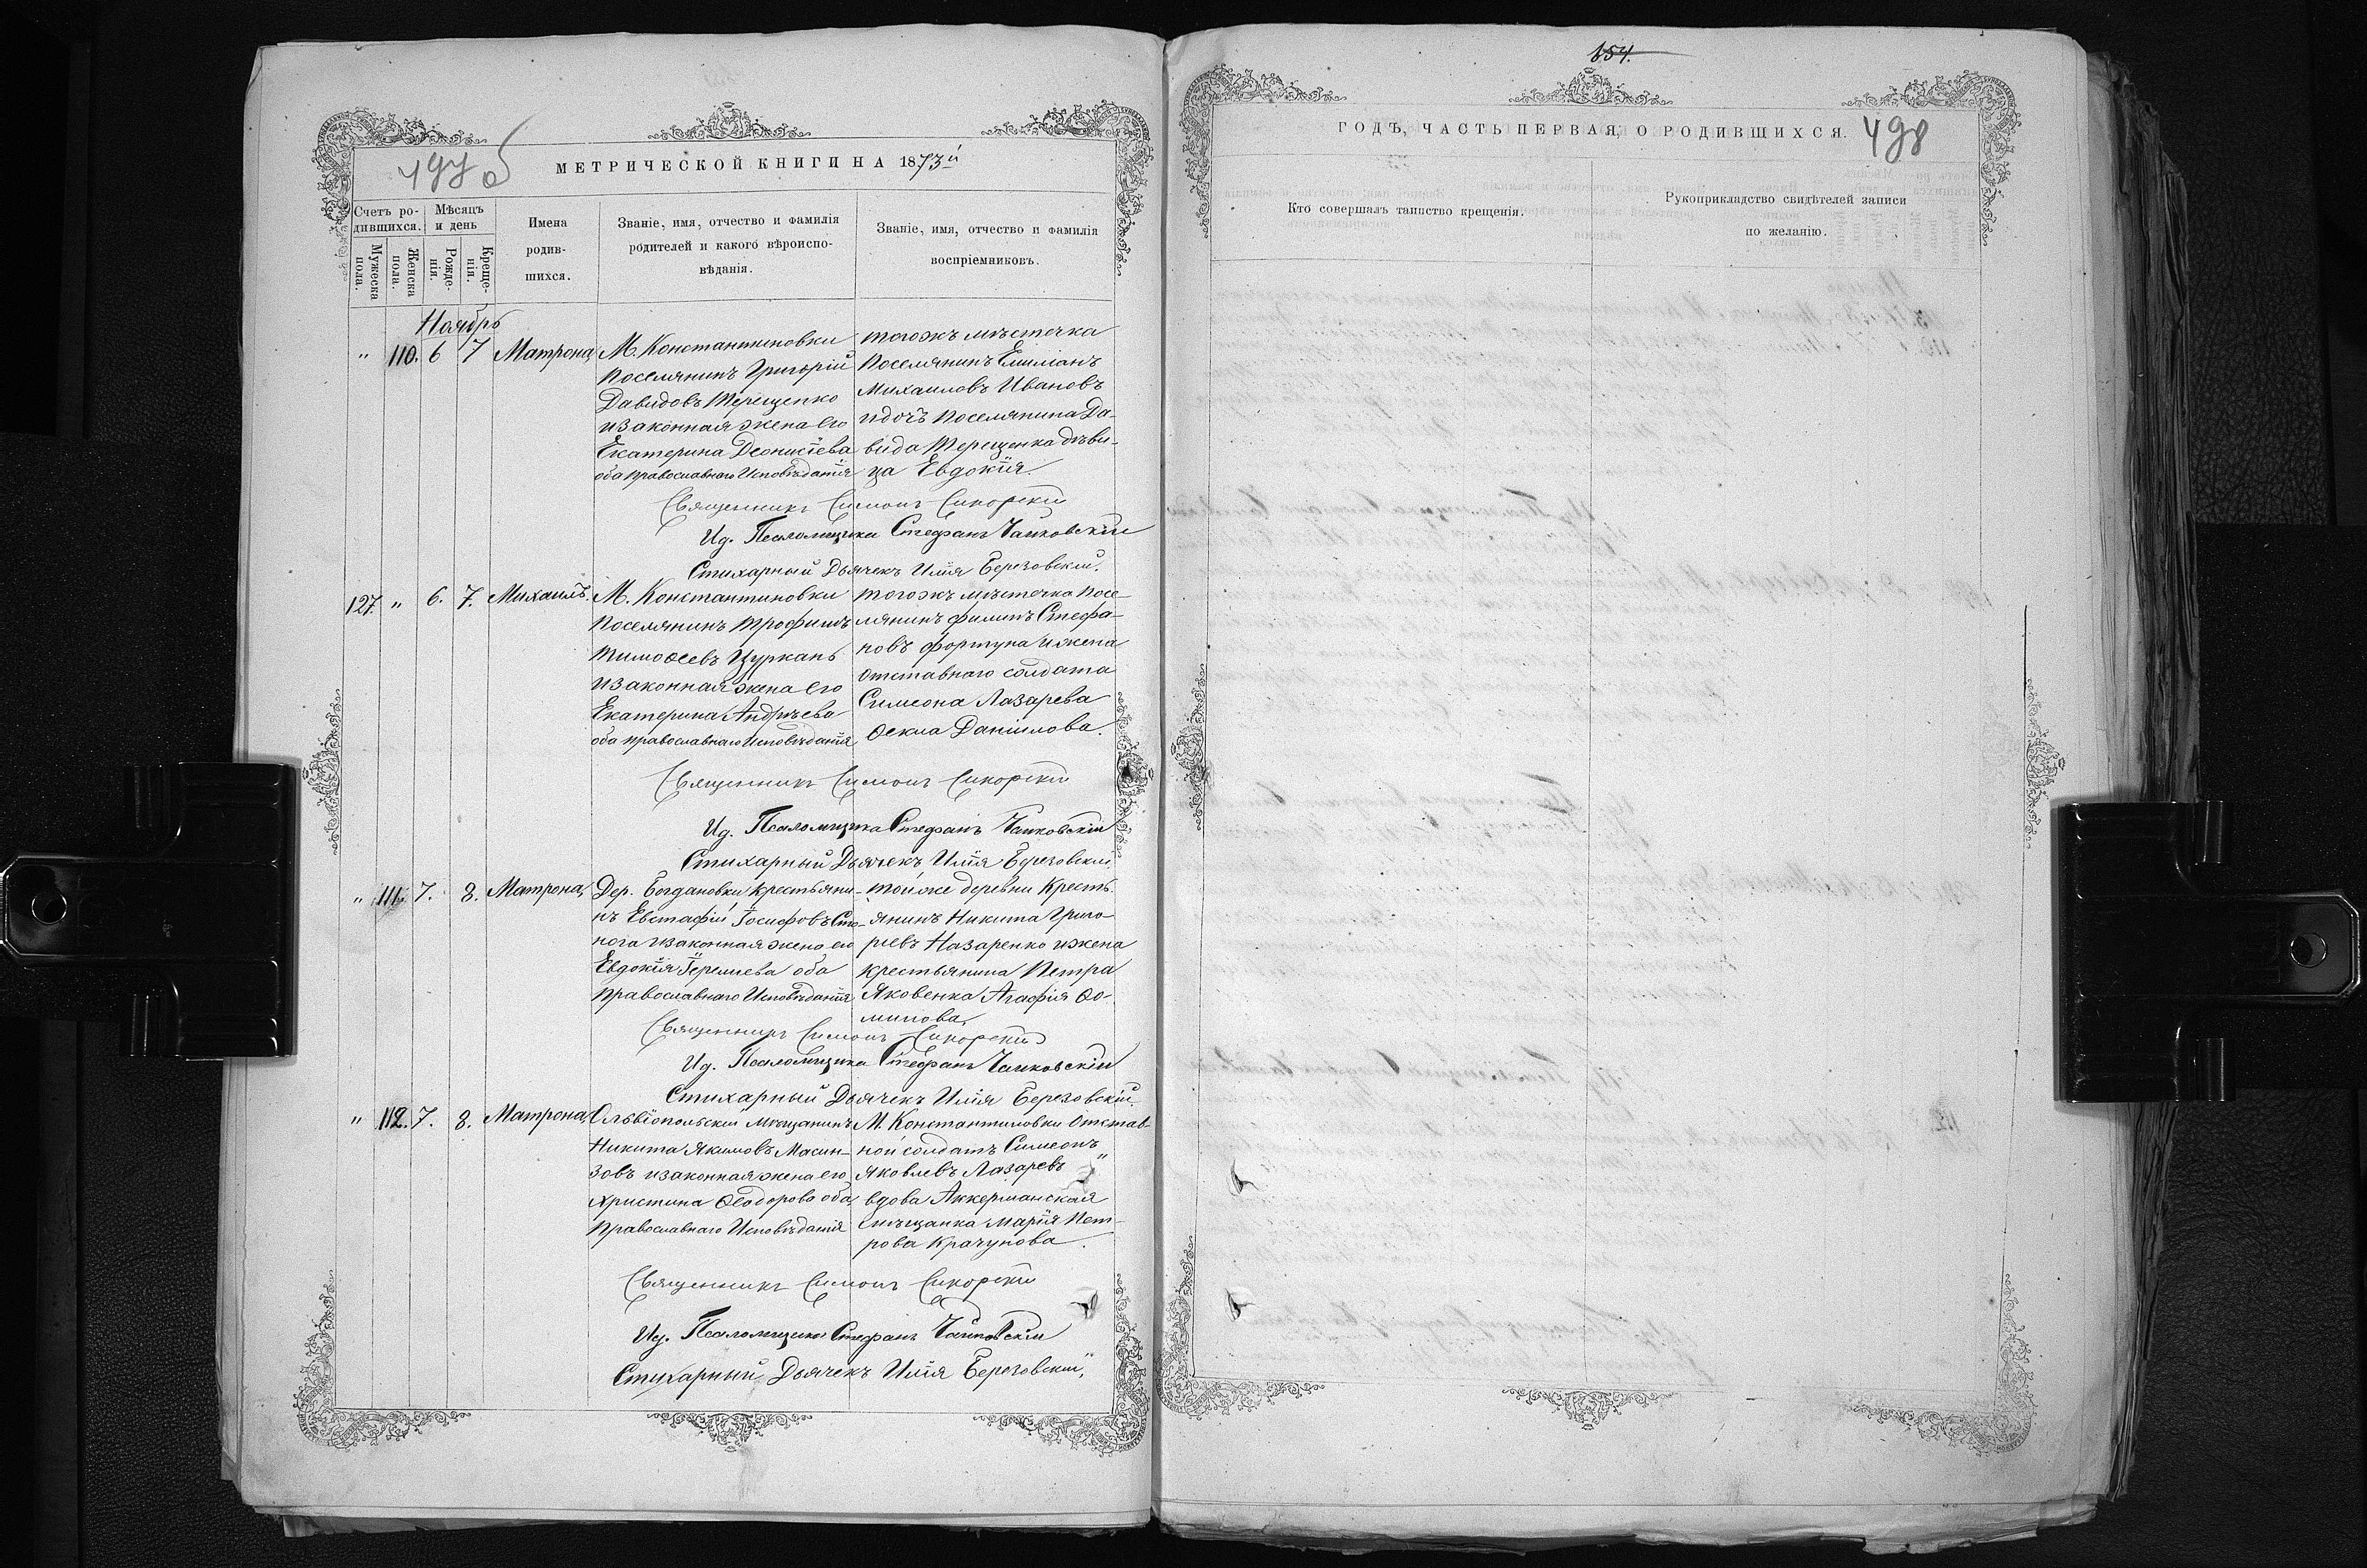 497 об
МЕТРИЧЕСКОЙ КНИГИ НА 1873й
Счетъ ро-
дившихся.
Мужеска
пола.
Женска
пола.
Мѣсяцъ
и день
Рожде-
нія.
Креще-
нія.
Имена
родив-
шихся.
Званіе, имя, отчество и фамилія
родителей и какого вѣроиспо-
вѣданія.
Званіе, имя, отчество и фамилія
воспріемниковъ.
Ноябрь
" 110. 6 7 Матрона
М. Константиновки
Поселянинъ Григорій
Давидовъ Терещенко
изаконная жена его
Екатерина Деонисіева
оба православнаго Исповѣданія
тогожъ мѣстечка
Поселянинъ Емиліанъ
Михаиловъ Ивановъ
идочь поселянина Да-
вида Терещенка дѣви-
ца Евдокія.
Священникъ Симонъ Сикорскій
Ид. Псаломщика Стефанъ Чайковскій
Стихарный Дьячекъ Илія Березовскій.
127. " 6. 7. Михаилъ.
М. Константиновки
Поселянинъ Трофимъ
Тимоѳеевъ Цурканъ
изаконная жена его
Екатерина Андрѣева
оба православнаго Исповѣданія
тогожъ мѣстечка посе-
лянинъ филипъ Стефа-
новъ фортуна ижена
отставнаго солдата
Симеона Лазарева
Ѳекла Даніилова.
Священникъ Симонъ Сикорскій
Ид. Псаломщика Стефанъ Чайковскій
Стихарный Дьячекъ Илія Березовскій
" 111. 7. 8. Матрона,
Дер. Богдановки крестьяни-
нъ Евстафій Іосифовъ Сто-
нога изаконная жена его
Евдокія Іереміева оба
православнаго Исповѣданія
тойже деревни Кресть-
янинъ Никита Григо-
ріевъ Назаренко ижена
крестьянина Петра
Яковенка Агафія Ѳо-
минова,
Священникъ Симонъ Сикорскій
Ид. Псаломщика Стефанъ Чайковскій
Стихарный Дьячекъ Илія Березовскій.
" 112. 7. 8. Матрона,
Ольвіопольскій мѣщанинъ
Никита Якимовъ Масин-
зовъ изаконная жена его
Христина Ѳеодорова оба
православнаго Исповѣданія
М. Константиновки Отстав-
ной солдатъ Симеонъ
Яковлевъ Лазаревъ "
вдова Аккерманская
мѣщанка Марія Пет-
рова Крачунова.
Священникъ Симонъ Сикорскій
Ид. Псаломщика Стефанъ Чайковскій
Стихарный Дьячекъ Илія Березовскій,
154.
498
ГОДЪ, ЧАСТЬ ПЕРВАЯ, О РОДИВШИХСЯ.
Кто совершалъ таинство крещенія.
Рукоприкладство свидѣтелей записи
по желанію.